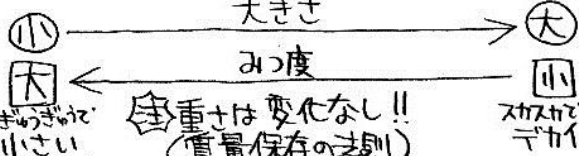 大きさ
小 大
みつ度
大 小
ぎゅうぎゅうで
小さい
注重さは変化なし!!
(質量保存の法則)
スカスカで
デカイ